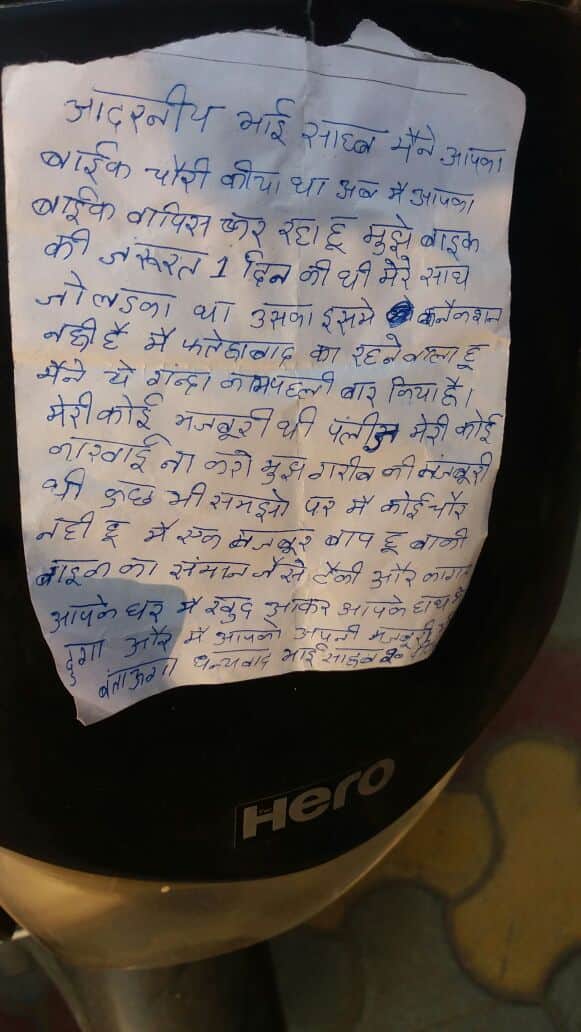 आदरनीय भाई साहब मैने आपका
बाईक चोरी कीया था अब मै आपका
बाईक वापिस कर रहा हू मुझे बाइक
की जरूरत 1 दिन की थी मेरे साथ
जो लडका था उसका इसमे कनैकशन
नही है मै फतेहाबाद का रहने वाला हू
मैने ये गन्दा काम पहली बार किया है।
मेरी कोई मजबूरी थी पंलीज मेरी कोई
कारवाई ना करो मुझ गरीब की मंजबूरी
थी कुछ भी समझो पर मै कोई चौर
नही हू मै एक मजबूर बाप हू बाकी
बाइक का संमान जैसे टैंकी और
आपके घर मै खुद आकर आपके हाथ
दुगा और मै आपको अपनी मजबूरी
बंताऊगा धन्यवाद भाई साहब
Hero